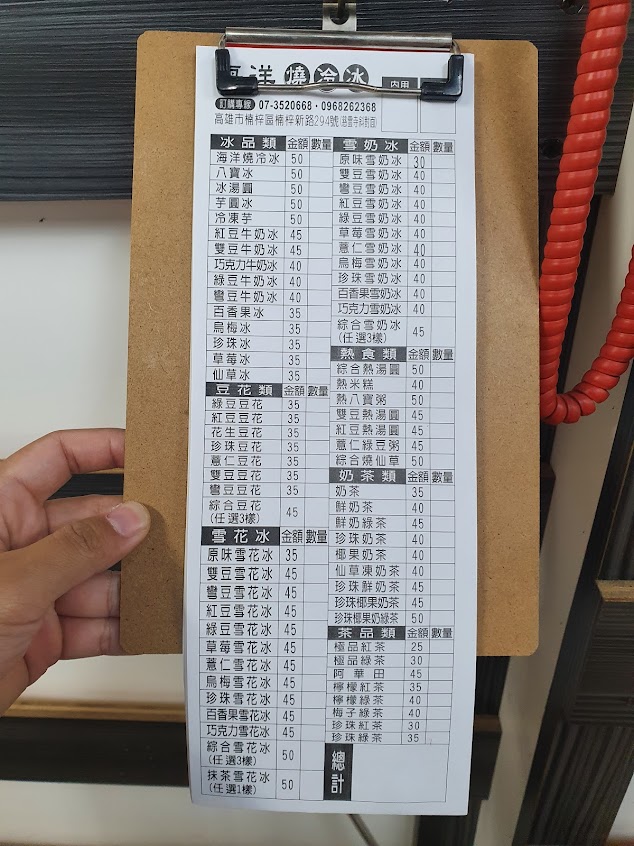 海洋燒冷冰
內用
訂購專線 07-3520668・0968262368
高雄市楠梓區楠梓新路294號(慈雲寺斜對面)
冰品類 金額 數量
海洋燒冷冰 50
八寶冰 50
冰湯圓 50
芋圓冰 50
冷凍芋 50
紅豆牛奶冰 45
雙豆牛奶冰 45
巧克力牛奶冰 40
綠豆牛奶冰 40
彎豆牛奶冰 40
百香果冰 35
烏梅冰 35
珍珠冰 35
草莓冰 35
仙草冰 35
豆花類 金額 數量
綠豆豆花 35
紅豆豆花 35
花生豆花 35
珍珠豆花 35
薏仁豆花 35
雙豆豆花 35
彎豆豆花 35
綜合豆花 45
(任選3樣)
雪花冰 金額 數量
原味雪花冰 35
雙豆雪花冰 45
彎豆雪花冰 45
紅豆雪花冰 45
綠豆雪花冰 45
草莓雪花冰 45
薏仁雪花冰 45
烏梅雪花冰 45
珍珠雪花冰 45
百香果雪花冰 45
巧克力雪花冰 45
綜合雪花冰 50
(任選3樣)
抹茶雪花冰 50
(任選1樣)
雪奶冰 金額 數量
原味雪奶冰 30
雙豆雪奶冰 40
彎豆雪奶冰 40
紅豆雪奶冰 40
綠豆雪奶冰 40
草莓雪奶冰 40
薏仁雪奶冰 40
烏梅雪奶冰 40
珍珠雪奶冰 40
百香果雪奶冰 40
巧克力雪奶冰 40
綜合雪奶冰 45
(任選3樣)
熱食類 金額 數量
綜合熱湯圓 50
熱米糕 40
熱八寶粥 50
雙豆熱湯圓 45
紅豆熱湯圓 45
薏仁綠豆粥 45
綜合燒仙草 50
奶茶類 金額 數量
奶茶 35
鮮奶茶 40
鮮奶綠茶 45
珍珠奶茶 40
椰果奶茶 40
仙草凍奶茶 40
珍珠鮮奶茶 45
珍珠椰果奶茶 45
珍珠椰果奶綠茶 50
茶品類 金額 數量
極品紅茶 25
極品綠茶 30
阿華田 45
檸檬紅茶 35
檸檬綠茶 40
梅子綠茶 40
珍珠紅茶 30
珍珠綠茶 35
總計